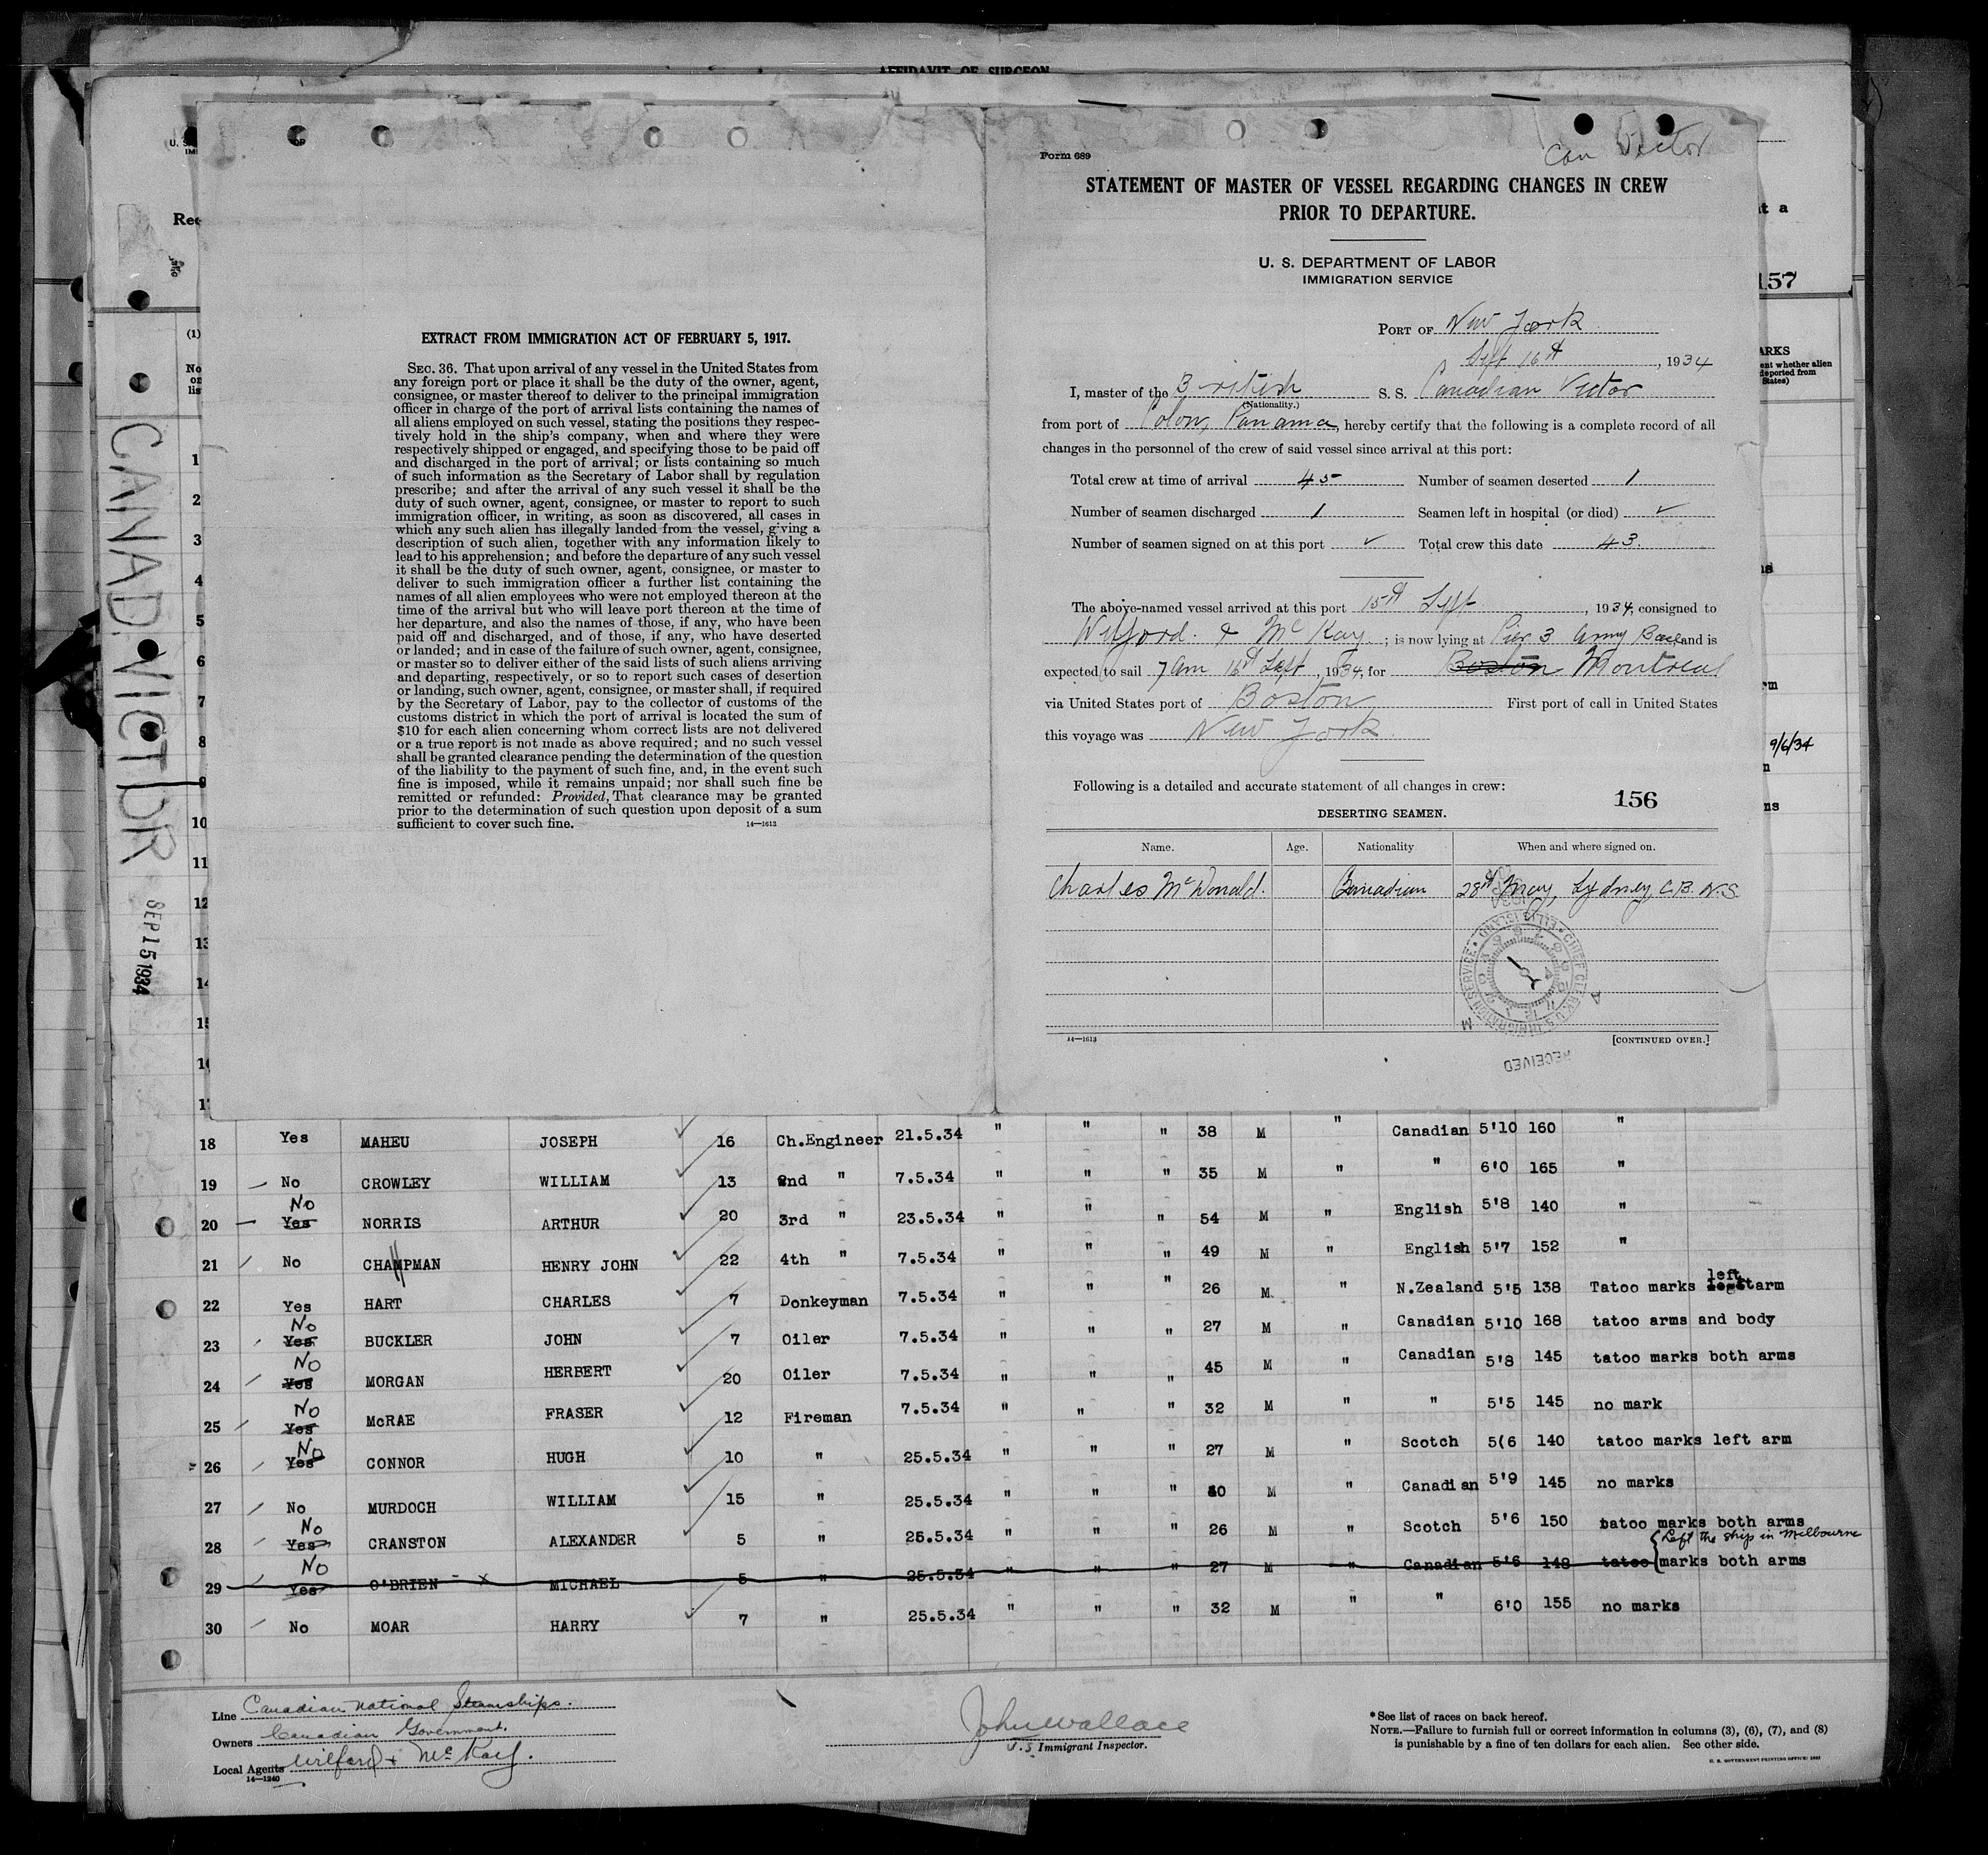 AFFIDAVIT OF SURGEON
U. S.
IMI
Rec
(1)
No
on
lis
CANAD. VICTOR
SEP 15 1934
1
2
3
4
5
6
7
8
9
10
11
12
13
14
15
EXTRACT FROM IMMIGRATION ACT OF FEBRUARY 5, 1917.
SEC. 36. That upon arrival of any vessel in the United States from
any foreign port or place it shall be the duty of the owner, agent,
consignee, or master thereof to deliver to the principal immigration
officer in charge of the port of arrival lists containing the names of
all aliens employed on such vessel, stating the positions they respec-
tively hold in the ship's company, when and where they were
respectively shipped or engaged, and specifying those to be paid off
and discharged in the port of arrival; or lists containing so much
of such information as the Secretary of Labor shall by regulation
prescribe; and after the arrival of any such vessel it shall be the
duty of such owner, agent, consignee, or master to report to such
immigration officer, in writing, as soon as discovered, all cases in
which any such alien has illegally landed from the vessel, giving a
description of such alien, together with any information likely to
lead to his apprehension; and before the departure of any such vessel
it shall be the duty of such owner, agent, consignee, or master to
deliver to such immigration officer a further list containing the
names of all alien employees who were not employed thereon at the
time of the arrival but who will leave port thereon at the time of
her departure, and also the names of those, if any, who have been
paid off and discharged, and of those, if any, who have deserted
or landed; and in case of the failure of such owner, agent, consignee,
or master so to deliver either of the said lists of such aliens arriving
and departing, respectively, or so to report such cases of desertion
or landing, such owner, agent, consignee, or master shall, if required
by the Secretary of Labor, pay to the collector of customs of the
customs district in which the port of arrival is located the sum of
$10 for each alien concerning whom correct lists are not delivered
or a true report is not made as above required; and no such vessel
shall be granted clearance pending the determination of the question
of the liability to the payment of such fine, and, in the event such
fine is imposed, while it remains unpaid; nor shall such fine be
remitted or refunded: Provided, That clearance may be granted
prior to the determination of such question upon deposit of a sum
sufficient to cover such fine.
14—1613
Can Victor
Form 689
STATEMENT OF MASTER OF VESSEL REGARDING CHANGES IN CREW
PRIOR TO DEPARTURE.
U. S. DEPARTMENT OF LABOR
IMMIGRATION SERVICE
PORT OF New York
Sept 16th, 1934
I, master of the British S. S. Canadian Victor
(Nationality.)
from port of Colon, Panama, hereby certify that the following is a complete record of all
changes in the personnel of the crew of said vessel since arrival at this port:
Total crew at time of arrival 45 Number of seamen deserted 1
Number of seamen discharged 1 Seamen left in hospital (or died) ✓
Number of seamen signed on at this port ✓ Total crew this date 43.
The above-named vessel arrived at this port 15th Sept, 1934, consigned to
Wilford & McKay; is now lying at Pier 3 Army Base, and is
expected to sail 7 am 16th Sept, 1934, for Boston Montreal
via United States port of Boston First port of call in United States
this voyage was New York
Following is a detailed and accurate statement of all changes in crew:
156
DESERTING SEAMEN.
Name. Age. Nationality When and where signed on.
Charles McDonald. Canadian 28th May, Sydney, C.B. N.S.
CHIEF CLERK U. S. IMMIGRATION SERVICE ELLIS ISLAND
RECEIVED
14—1613 [CONTINUED OVER.]
t a
157
ARKS
ent whether alien
deported from
States)
9/6/34
18 Yes MAHEU JOSEPH ✓ 16 Ch.Engineer 21.5.34 " " " 38 M " Canadian 5'10 160 "
19 No CROWLEY WILLIAM ✓ 13 2nd " 7.5.34 " " " 35 M " " 6'0 165 "
20 Yes No NORRIS ARTHUR ✓ 20 3rd " 23.5.34 " " " 54 M " English 5'8 140 "
21 No CHAPMAN HENRY JOHN ✓ 22 4th " 7.5.34 " " " 49 M " English 5'7 152 "
22 Yes HART CHARLES ✓ 7 Donkeyman 7.5.34 " " " 26 M. " N.Zealand 5'5 138 Tatoo marks left arm
23 Yes No BUCKLER JOHN ✓ 7 Oiler 7.5.34 " " " 27 M " Canadian 5'10 168 tatoo arms and body
24 Yes No MORGAN HERBERT ✓ 20 Oiler 7.5.34 " " " 45 M " Canadian 5'8 145 tatoo marks both arms
25 Yes No McRAE FRASER ✓ 12 Fireman 7.5.34 " " " 32 M " " 5'5 145 no mark
26 Yes No CONNOR HUGH ✓ 10 " 25.5.34 " " " 27 M " Scotch 5(6 140 tatoo marks left arm
27 No MURDOCH WILLIAM ✓ 15 " 25.5.34 " " " 40 M " Canadian 5'9 145 no marks
28 Yes No CRANSTON ALEXANDER ✓ 5 " 25.5.34 " " " 26 M " Scotch 5'6 150 tatoo marks both arms
Left the ship in Melbourne
29 Yes No O'BRIEN - x MICHAEL 5 " 25.5.34 " " " 27 M " Canadian 5'6 148 tatoo marks both arms
30 No MOAR HARRY ✓ 7 " 25.5.34 " " " 32 M " " 6'0 155 no marks
Line Canadian National Steamships.
Owners Canadian Government.
Local Agents Wilford & McKay.
14—1240
John Wallace
U. S. Immigrant Inspector.
* See list of races on back hereof.
NOTE.—Failure to furnish full or correct information in columns (3), (6), (7), and (8)
is punishable by a fine of ten dollars for each alien. See other side.
U. S. GOVERNMENT PRINTING OFFICE: 1932